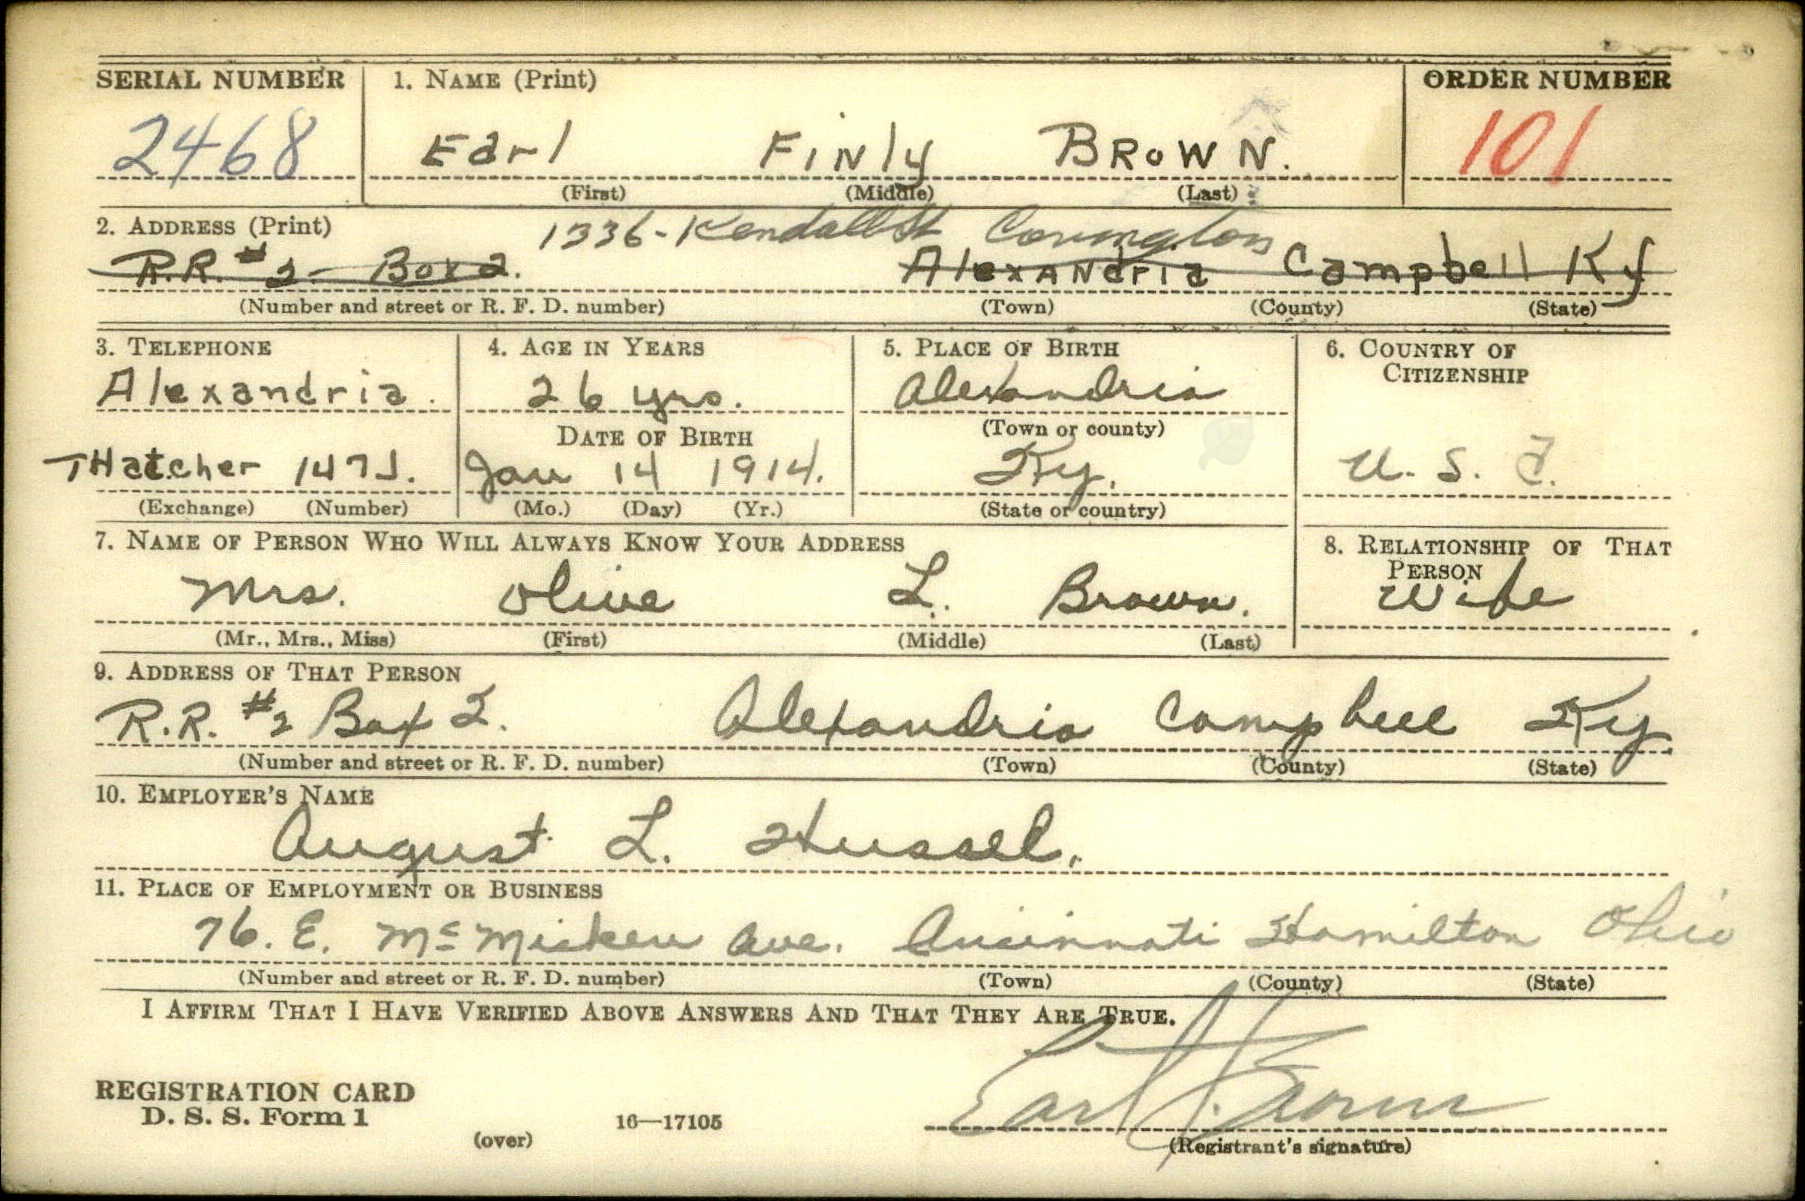 SERIAL NUMBER 1. NAME (Print) ORDER NUMBER
2468 Earl Finly BROWN. 101
(First) (Middle) (Last)
2. ADDRESS (Print) 1336-Kendall St Covington
R.R. #2- Box 2. Alexandria Campbell Ky
(Number and street or R. F. D. number) (Town) (County) (State)
3. TELEPHONE 4. AGE IN YEARS 5. PLACE OF BIRTH 6. COUNTRY OF CITIZENSHIP
Alexandria. 26 yrs. Alexandria
DATE OF BIRTH (Town or county)
THatcher 147J. Jan 14 1914. Ky. U. S. A.
(Exchange) (Number) (Mo.) (Day) (Yr.) (State or country)
7. NAME OF PERSON WHO WILL ALWAYS KNOW YOUR ADDRESS 8. RELATIONSHIP OF THAT PERSON
Mrs. Olive L. Brown. Wife
(Mr., Mrs., Miss) (First) (Middle) (Last)
9. ADDRESS OF THAT PERSON
R.R. #2 Box 2. Alexandria Campbell Ky.
(Number and street or R. F. D. number) (Town) (County) (State)
10. EMPLOYER'S NAME
August L. Hussel.
11. PLACE OF EMPLOYMENT OR BUSINESS
76. E. McMicken Ave. Cincinnati Hamilton Ohio
(Number and street or R. F. D. number) (Town) (County) (State)
I AFFIRM THAT I HAVE VERIFIED ABOVE ANSWERS AND THAT THEY ARE TRUE.
REGISTRATION CARD
D. S. S. Form 1 16—17105 Earl F. Brown
(over) (Registrant's signature)